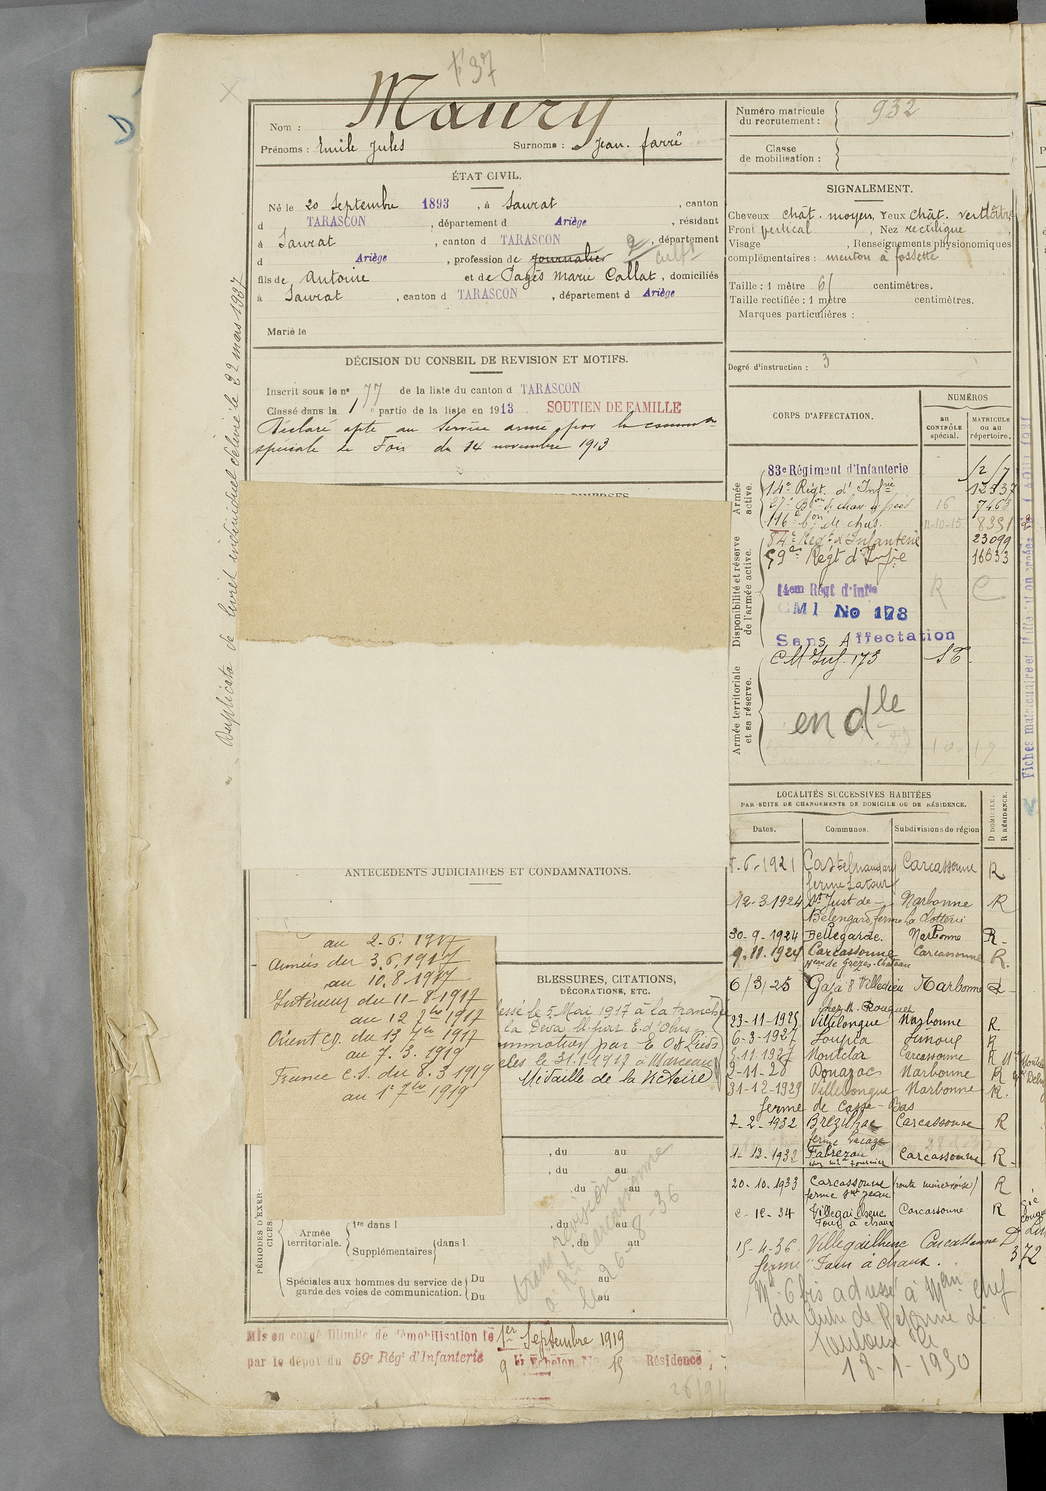 F° 37
D
Nom : Maury
Prénoms : Emile Jules Surnoms : Jean. farré
Numéro matricule du recrutement : 932
Classe de mobilisation :
ÉTAT CIVIL.
Né le 20 Septembre 1893, à Saurat, canton
d TARASCON, département d Ariège, résidant
à Saurat, canton d TARASCON, département
d Ariège, profession de journalier cultr
fils de Antoine et de Pagès Marie Callat, domiciliés
à Saurat, canton d TARASCON, département d Ariège
Marié le
SIGNALEMENT.
Cheveux chât. moyen, Yeux chât. verdâtre
Front vertical, Nez rectiligne,
Visage , Renseignements physionomiques
complémentaires : menton à fossette
Taille : 1 mètre 61 centimètres.
Taille rectifiée : 1 mètre centimètres.
Marques particulières :
Degré d'instruction : 3
DÉCISION DU CONSEIL DE REVISION ET MOTIFS.
Inscrit sous le n° 77 de la liste du canton d TARASCON
Classé dans la 1 partie de la liste en 1913. SOUTIEN DE FAMILLE
Déclaré apte au Service armé par la common
spéciale de Foix du 14 novembre 1913
Duplicata de livret individuel délivré le 22 mars 1937
CORPS D'AFFECTATION.
NUMÉROS
au CONTRÔLE spécial.
MATRICULE ou au répertoire.
Armée active.
83e Régiment d'Infanterie
14e Régt. d'Infrie 12537
27e Bon de chas à pied 16 7463
116e bon de chas. 11-10-15 8351
Disponibilité et réserve de l'armée active.
84e Régt d'Infanterie 23099
59e Régt d'Infie 16633
14em Régt d'Infie R C
CMI No 178
Sans Affectation
Armée territoriale et sa réserve.
CM Inf. 173
en dle
LOCALITÉS SUCCESSIVES HABITÉES
PAR SUITE DE CHANGEMENTS DE DOMICILE OU DE RÉSIDENCE.
Dates. Communes. Subdivisions de région D DOMICILE. R RÉSIDENCE.
8-6-1921 Castelnaudary Carcassonne R
ferme Latour
12-3-1924 St Just de Narbonne R
Bélengard, ferme la
30-9-1924 Bellegarde. Narbonne R
9.11.1924 Carcassonne Carcassonne R.
de Grèzes-Chateau
6/3/25 Gaja & Villedieu Narbonne R
chez M. Rouquet
23-11-1925 Villelongue Narbonne R
6-3-1927 Loupia Limoux R
Montclar Carcassonne R
2-11-28 Donazac Narbonne R
31-12-1929 Villelongue Narbonne R.
ferme de Casse-Bas
7-2-1932 Carcassonne R
1-12-1932 Fabrezan Carcassonne R
20-10-1933 Carcassonne (route minervoise) R
ferme St Jean
Villegailhenc Carcassonne R
Four à chaux
15-4-36. Villegailhenc Carcassonne D
ferme "Four à chaux.
372
No 6 bis adressé à Mr chef
du Centre de Réforme de
Toulouse le
18-1-1930
ANTÉCÉDENTS JUDICIAIRES ET CONDAMNATIONS.
au 2-6. 1917
Armées du 3.6.1917
au 10.8-1917
Intérieur du 11-8-1917
au 12 1917
Orient CD. du 13 1917
au 7. 3. 1919
France C.S. du 8.3 1919
au 1er 7bre 1919
BLESSURES, CITATIONS,
DÉCORATIONS, ETC.
essé le 5 Mai 1917 à la tranchée
31.1.1917 à Marceau
Médaille de la Victoire
, du au
, du au
, du au
PÉRIODES D'EXERCICES.
Armée territoriale.
1re dans l , du au
Supplémentaires dans l , du au
Spéciales aux hommes du service de garde des voies de communication.
Du au
Du au
révision
à Rt Carcassonne
le 26-8-36
Mis en congé illimité de démobilisation le 1er Septembre 1919
par le dépôt du 59e Régt d'Infanterie 9 Echelon No 15 Résidence